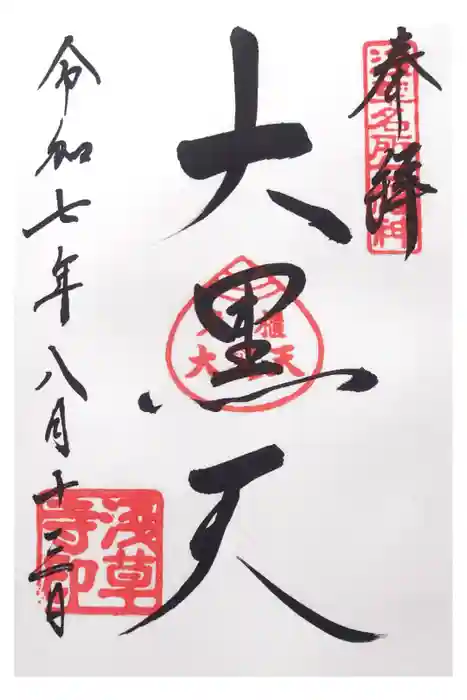 奉拝
浅草名所七福神
大黒天
令和七年八月十三日
浅草寺印